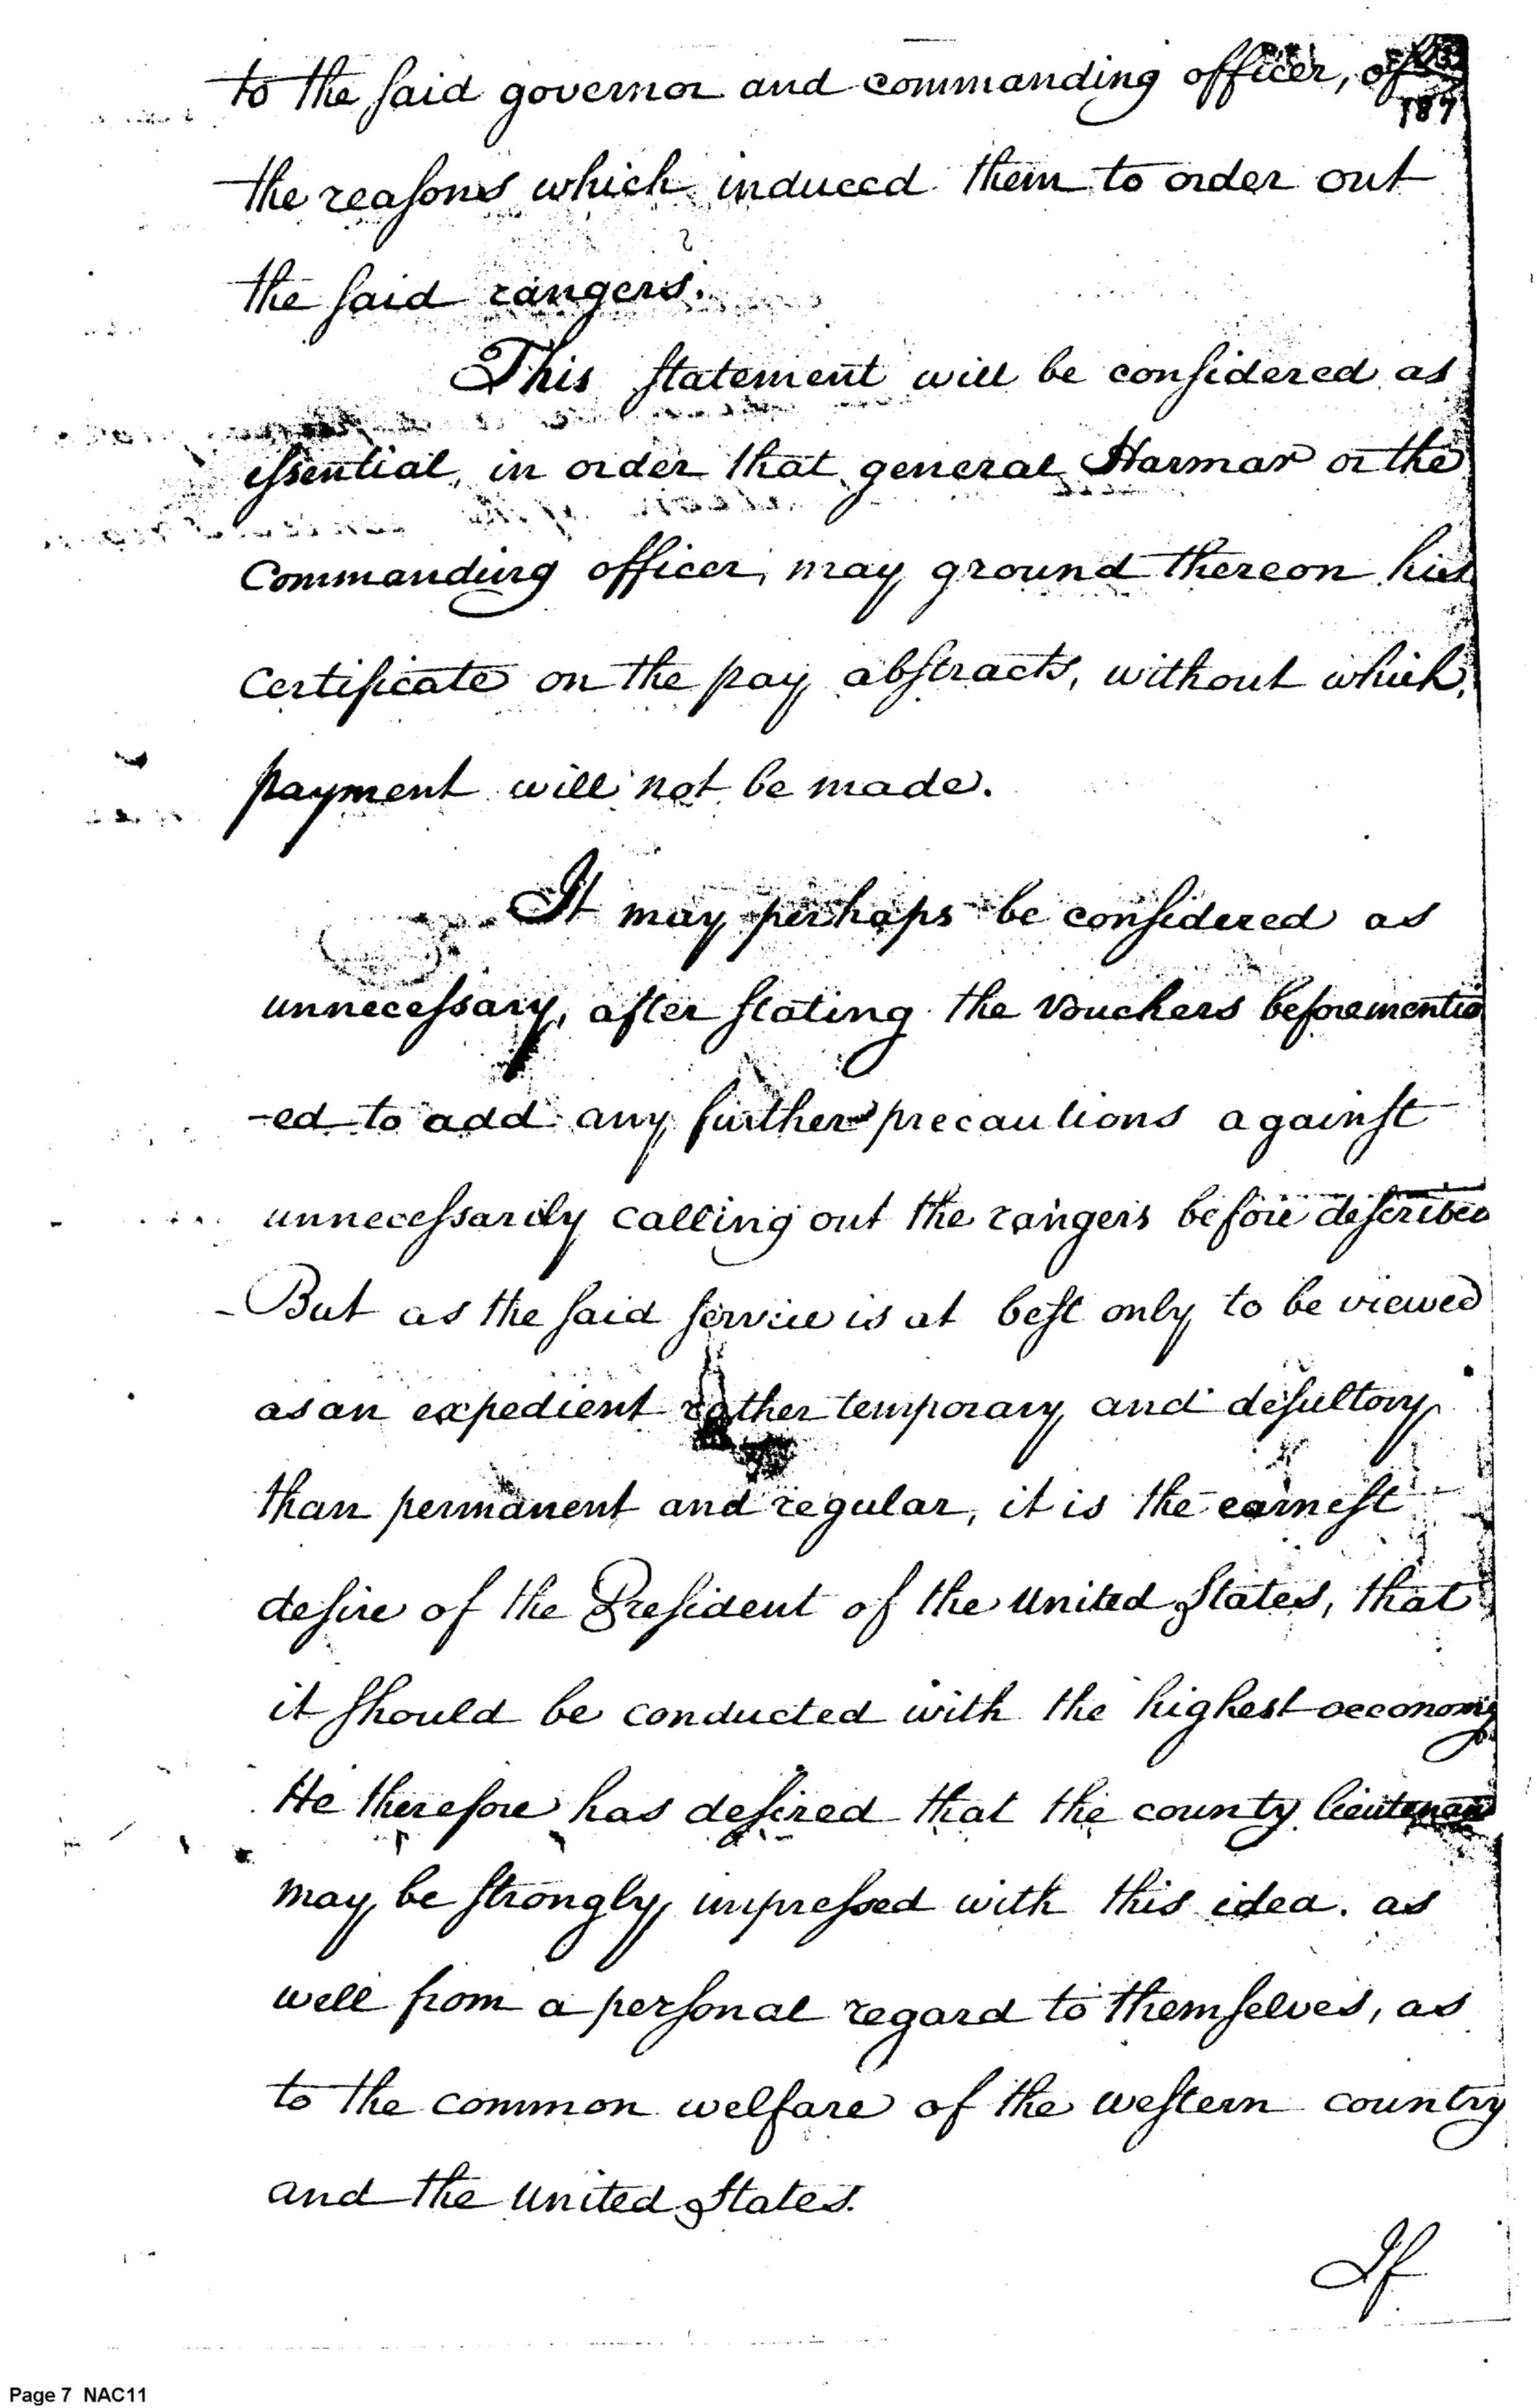 to the said governor and commanding officer, of
187
the reasons which induced them to order out
the said rangers.
This statement will be considered as
essential, in order that general Harmar or the
Commanding officer, may ground thereon his
Certificate on the pay abstracts, without which,
payment will not be made.
It may perhaps be considered as
unnecessary, after stating the vouchers beforementio
-ed to add any further precautions against
unnecessarily calling out the rangers before described
But as the said service is at best only to be viewed
as an expedient rather temporary and desultory
than permanent and regular, it is the earnest
desire of the President of the United States, that
it should be conducted with the highest oeconomy
He therefore has desired that the county lieutenan
may be strongly impressed with this idea. as
well from a personal regard to themselves, as
to the common welfare of the western country
and the United States.
If
Page 7 NAC11